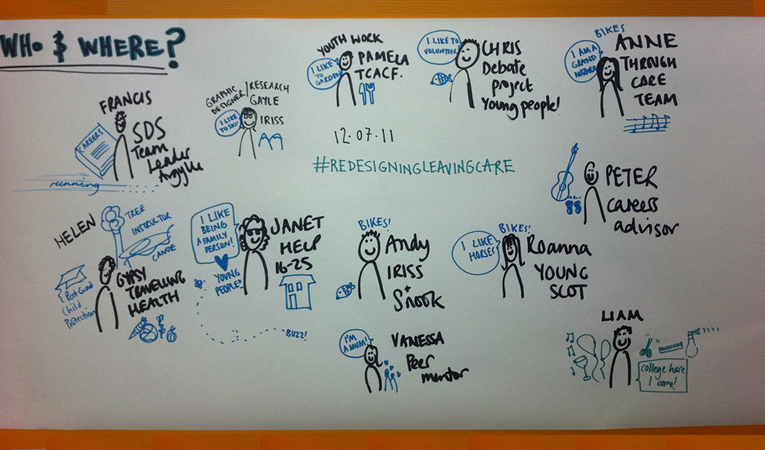 WHO & WHERE?
FRANCIS
CAREERS
SDS
Team
Leader
Argylle
running
GRAPHIC
DESIGNER/
RESEARCH
GAYLE
I LIKE
TO SKI!
IRISS
YOUTH WORK
I LIKE
TO
GARDEN
PAMELA
TCACF.
I LIKE TO
VOLUNTEER
CHRIS
Debate
project
Young people!
BIKES
I AM A
GRAND
MOTHER
ANNE
THROUGH
CARE
TEAM
12.07.11
#REDESIGNINGLEAVINGCARE
PETER
careers
advisor
HELEN
TREE
INSTRUCTOR
CANOE
Post-Grad
Child
Protection
GYPSY
TRAVELLING
HEALTH
I LIKE
BEING
A FAMILY
PERSON!
YOUNG
PEOPLE!
JANET
HELP
16-25
BUZZ!
BIKES!
Andy
IRISS
+
Snook
BIKES!
I LIKE
HORSES
Roanna
YOUNG
SCOT
I'M
A MUM!
VANESSA
Peer
mentor
LIAM
college here
I come!